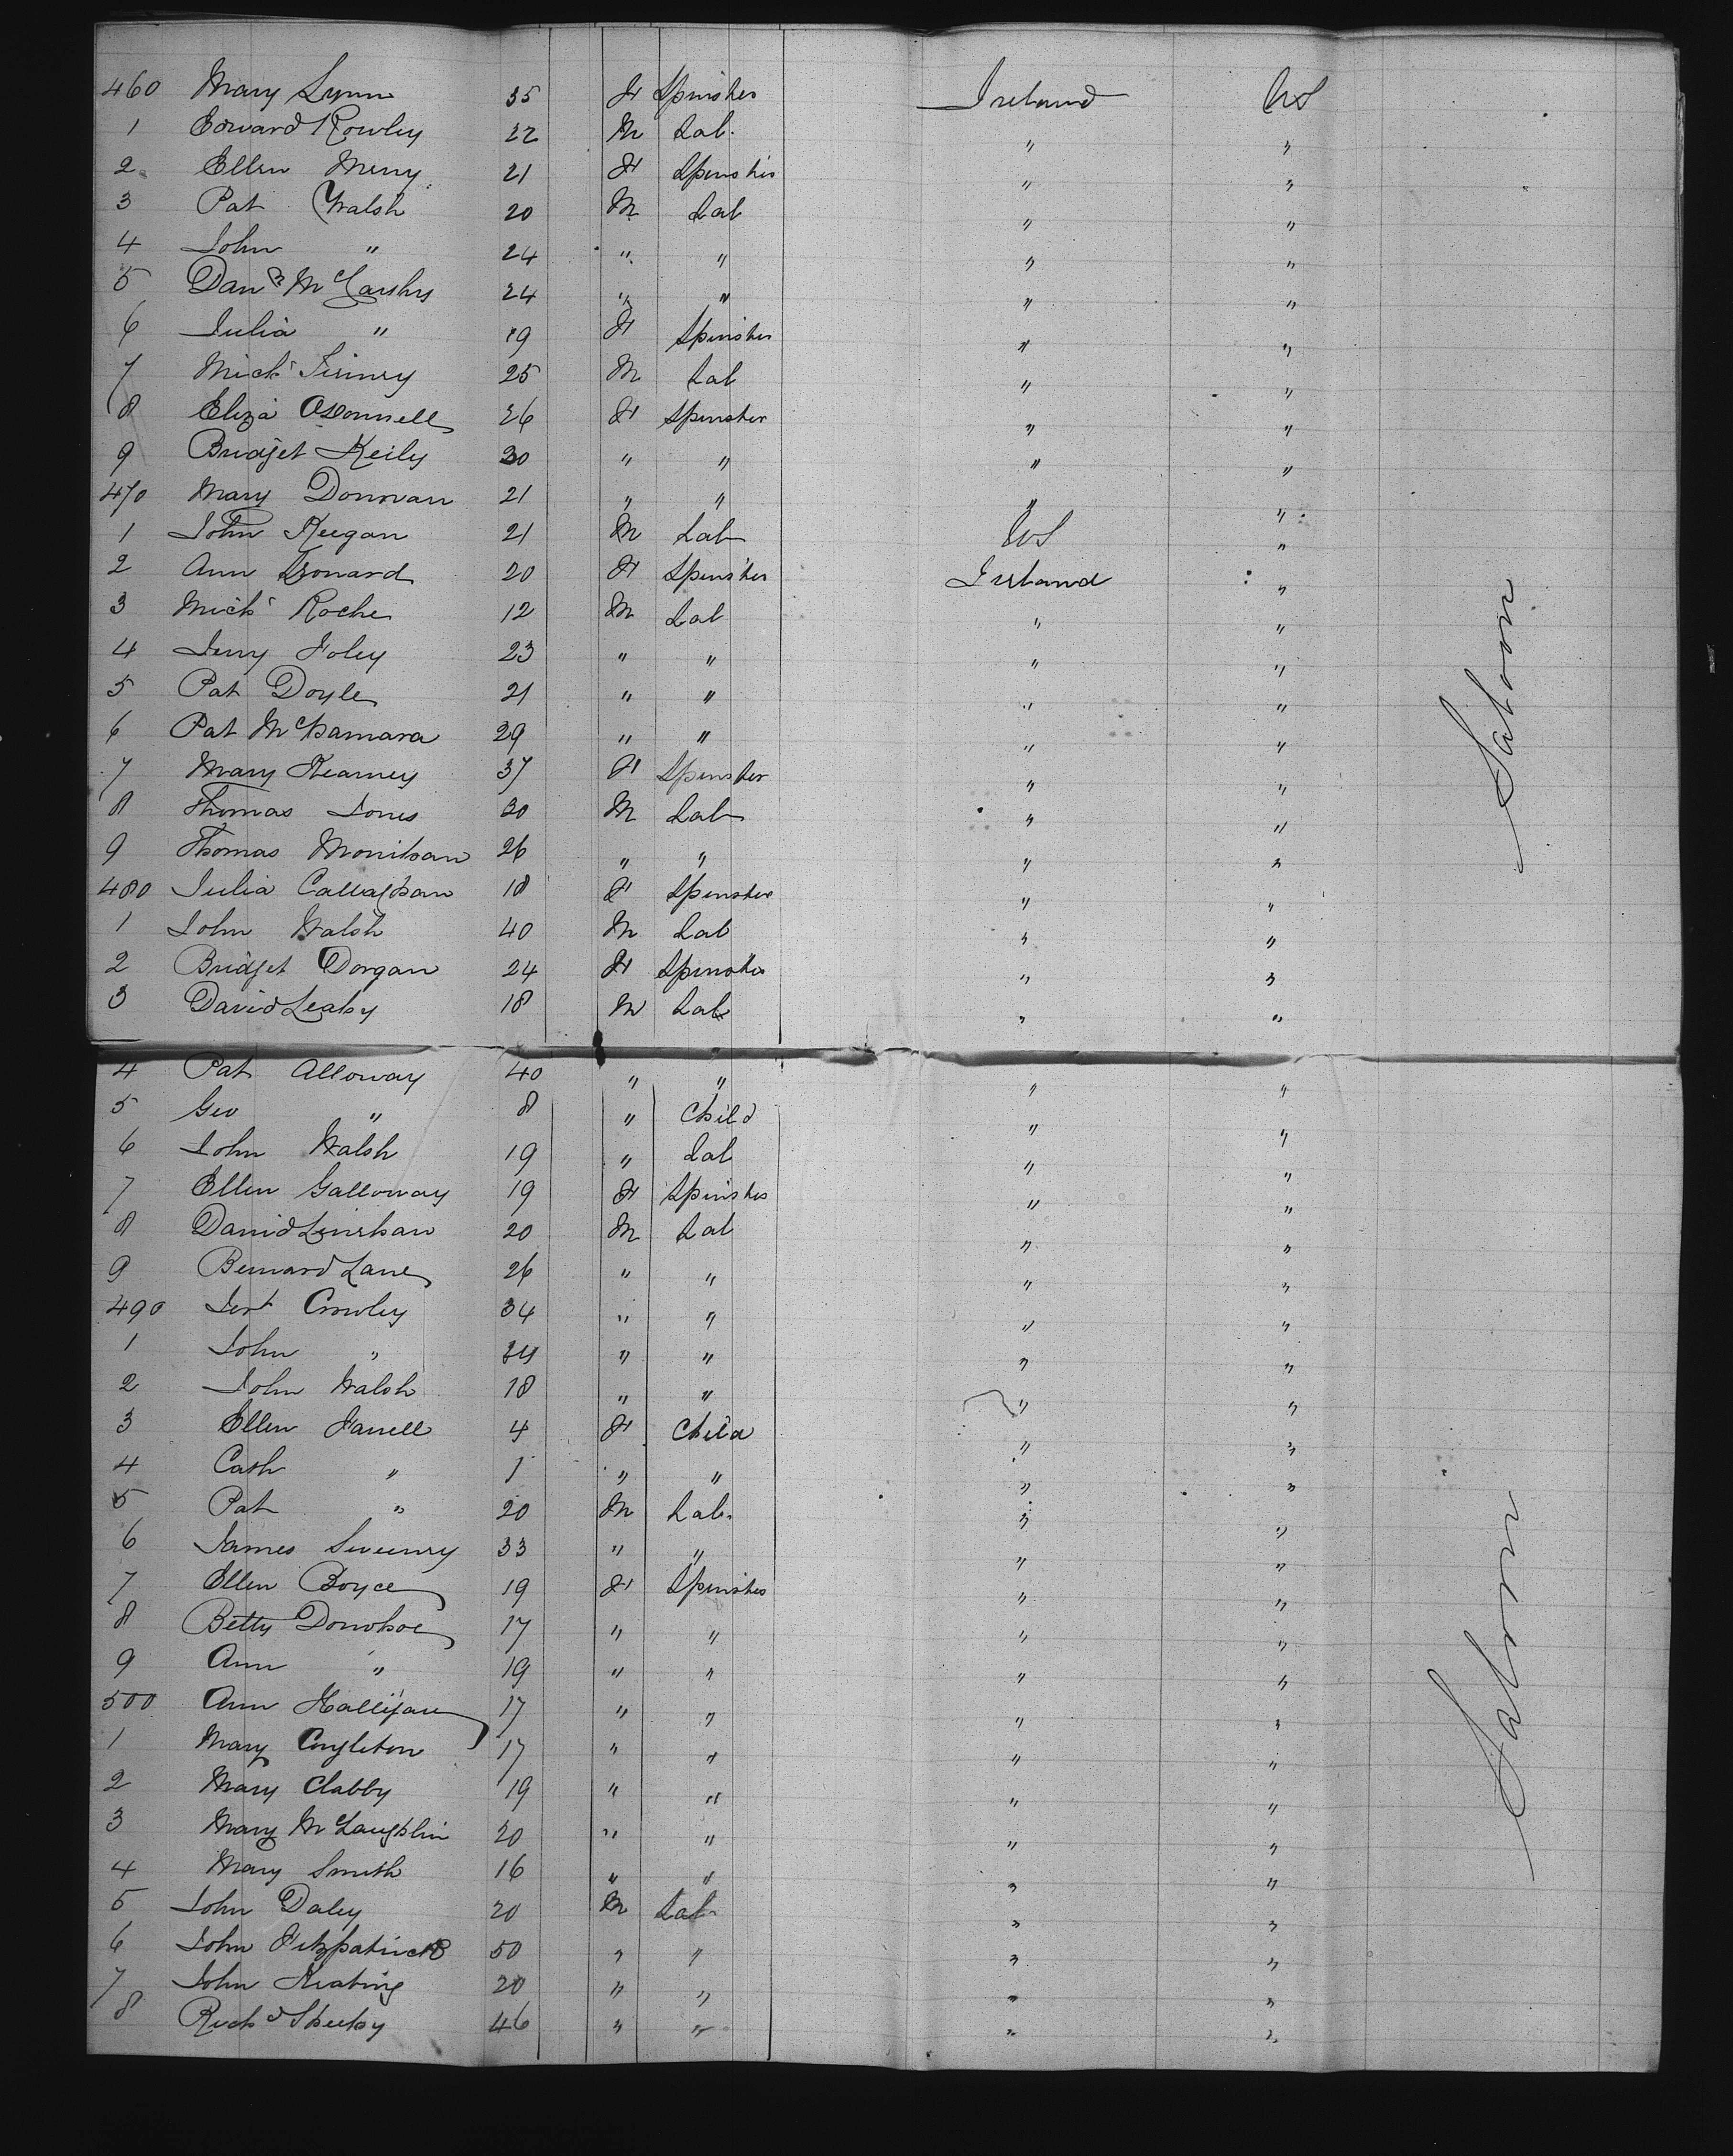 460 Mary Lynn 35 F Spinster Ireland US
1 Edward Rowley 22 M Lab. " "
2 Ellen Meny 21 F Spinster " "
3 Pat Walsh 20 M Lab " "
4 John " 24 " " " "
5 Danl McCarthy 24 " " " "
6 Julia " 19 F Spinster " "
7 Mich Finney 25 M Lab " "
8 Eliza ODonnell 26 F Spinster " "
9 Bridget Keily 30 " " " "
470 Mary Donovan 21 " " " "
1 John Keegan 21 M Lab US "
2 Ann Leonard 20 F Spinster Ireland "
3 Mich Roche 12 M Lab " "
4 Jerry Foley 23 " " " "
5 Pat Doyle 21 " " " "
6 Pat McNamara 29 " " " "
7 Mary Kearney 37 F Spinster " "
8 Thomas Jones 30 M Lab " "
9 Thomas Monihan 26 " " " "
480 Julia Callaghan 18 F Spinster " "
1 John Walsh 40 M Lab " "
2 Bridget Dorgan 24 F Spinster " "
3 David Leahy 18 M Lab " "
4 Pat Alloway 40 " " " "
5 Geo " 8 " Child " "
6 John Walsh 19 " Lab " "
7 Ellen Galloway 19 F Spinster " "
8 David Linehan 20 M Lab " "
9 Bernard Lane 26 " " " "
490 Jert Crowley 34 " " " "
1 John " 24 " " " "
2 John Walsh 18 " " " "
3 Ellen Farrell 4 F Child " "
4 Cath " 1 " " " "
5 Pat " 20 M Lab. " "
6 James Sweeney 33 " " " "
7 Ellen Boyce 19 F Spinster " "
8 Betty Donohoe 17 " " " "
9 Ann " 19 " " " "
500 Ann Halligan 17 " " " "
1 Mary Congleton 17 " " " "
2 Mary Clabby 19 " " " "
3 Mary McLaughlin 20 " " " "
4 Mary Smith 16 " " " "
5 John Daley 20 M Lab " "
6 John Fitzpatrick 50 " " " "
7 John Keating 20 " " " "
8 Richd Sheehy 46 " " " "
Saloon
Saloon